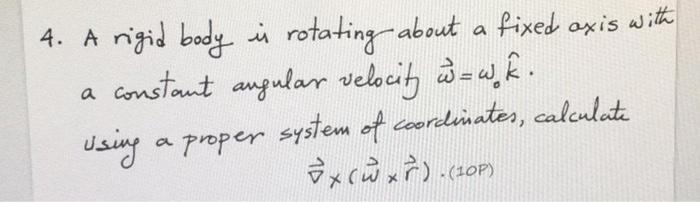 4. A rigid body is rotating about a fixed axis with
a constant angular velocity ω⃗ = ω₀ k̂.
Using a proper system of coordinates, calculate
∇⃗ × (ω⃗ × r⃗). (10P)